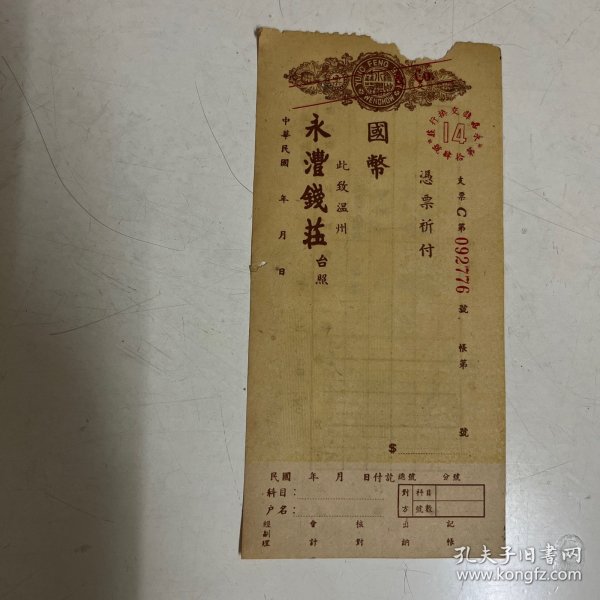 YUNG FENG
WENCHOW
Co.
永嘉縣交換行莊
14
第拾肆號
支票C第092776號
帳第 號
憑票祈付
國幣
$
此致温州
永灃錢莊台照
中華民國 年 月 日
民國 年 月 日付訖 總號 分號
科目：
户名：
對方
科目
號數
經副理 會計 核對 出納 記帳
孔夫子旧书网
www.kongfz.com